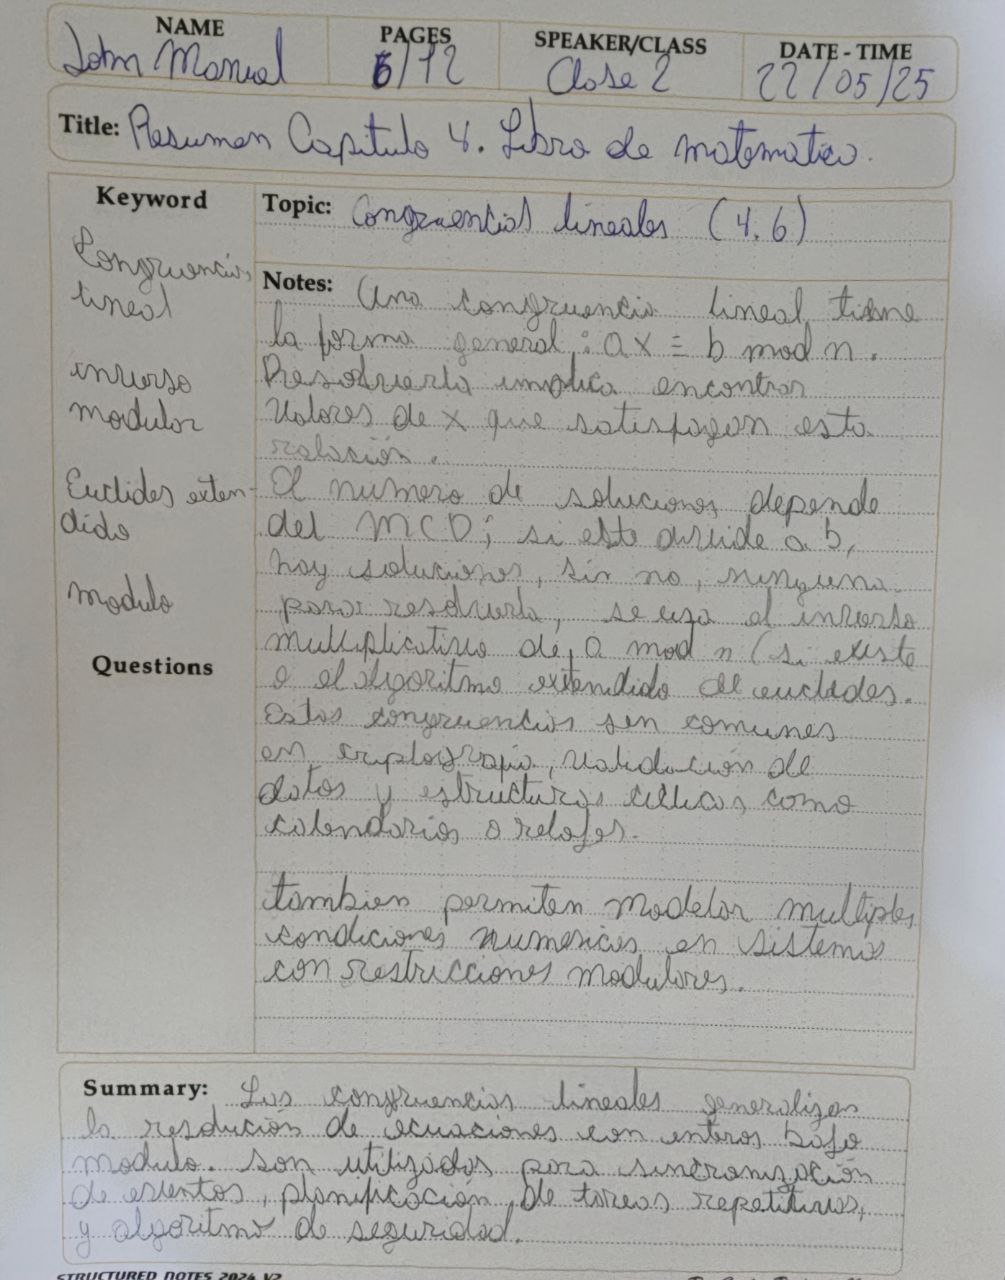 NAME PAGES SPEAKER/CLASS DATE - TIME
John Manuel 6/12 Clase 2 22/05/25
Title: Resumen Capitulo 4. Libro de matematica.
Keyword
Congruencia
lineal
inverso
modular
Euclides exten-
dido
modulo
Questions
Topic: Congruencias lineales (4.6)
Notes: Una congruencia lineal tiene
la forma general: ax ≡ b mod n.
Resolverla implica encontrar
valores de x que satisfagan esta
relación.
El numero de soluciones depende
del MCD; si este divide a b,
hay soluciones, sin no, ninguna.
para resolverla, se usa el inverso
multiplicativo de a mod n (si existe
o el algoritmo extendido de euclides.
Estas congruencias son comunes
en criptografia, validación de
datos y estructuras ciclicas como
calendarios o relojes.
tambien permiten modelar multiples
condiciones numericas en sistemas
con restricciones modulares.
Summary: Las congruencias lineales generalizan
la resolución de ecuaciones con enteros bajo
modulo. son utilizadas para sincronización
de eventos, planificación de tareas repetitivas,
y algoritmo de seguridad.
STRUCTURED NOTES 2024 V2